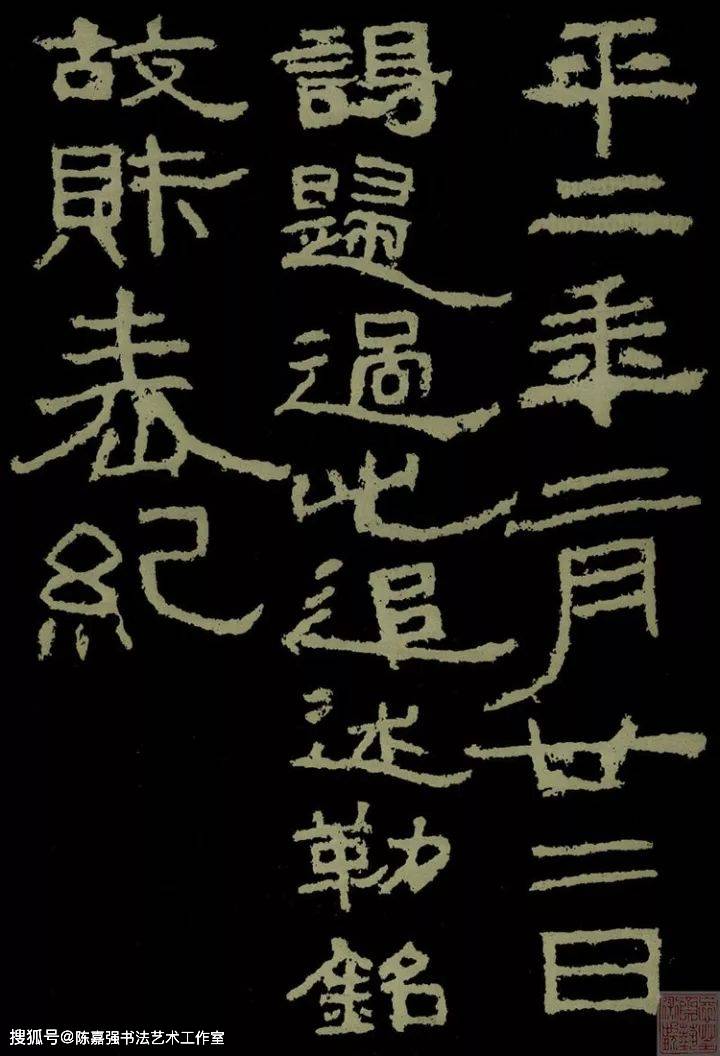 平二年二月廿二日
謁歸過此追述勒銘
故財表紀
搜狐号@陈嘉强书法艺术工作室